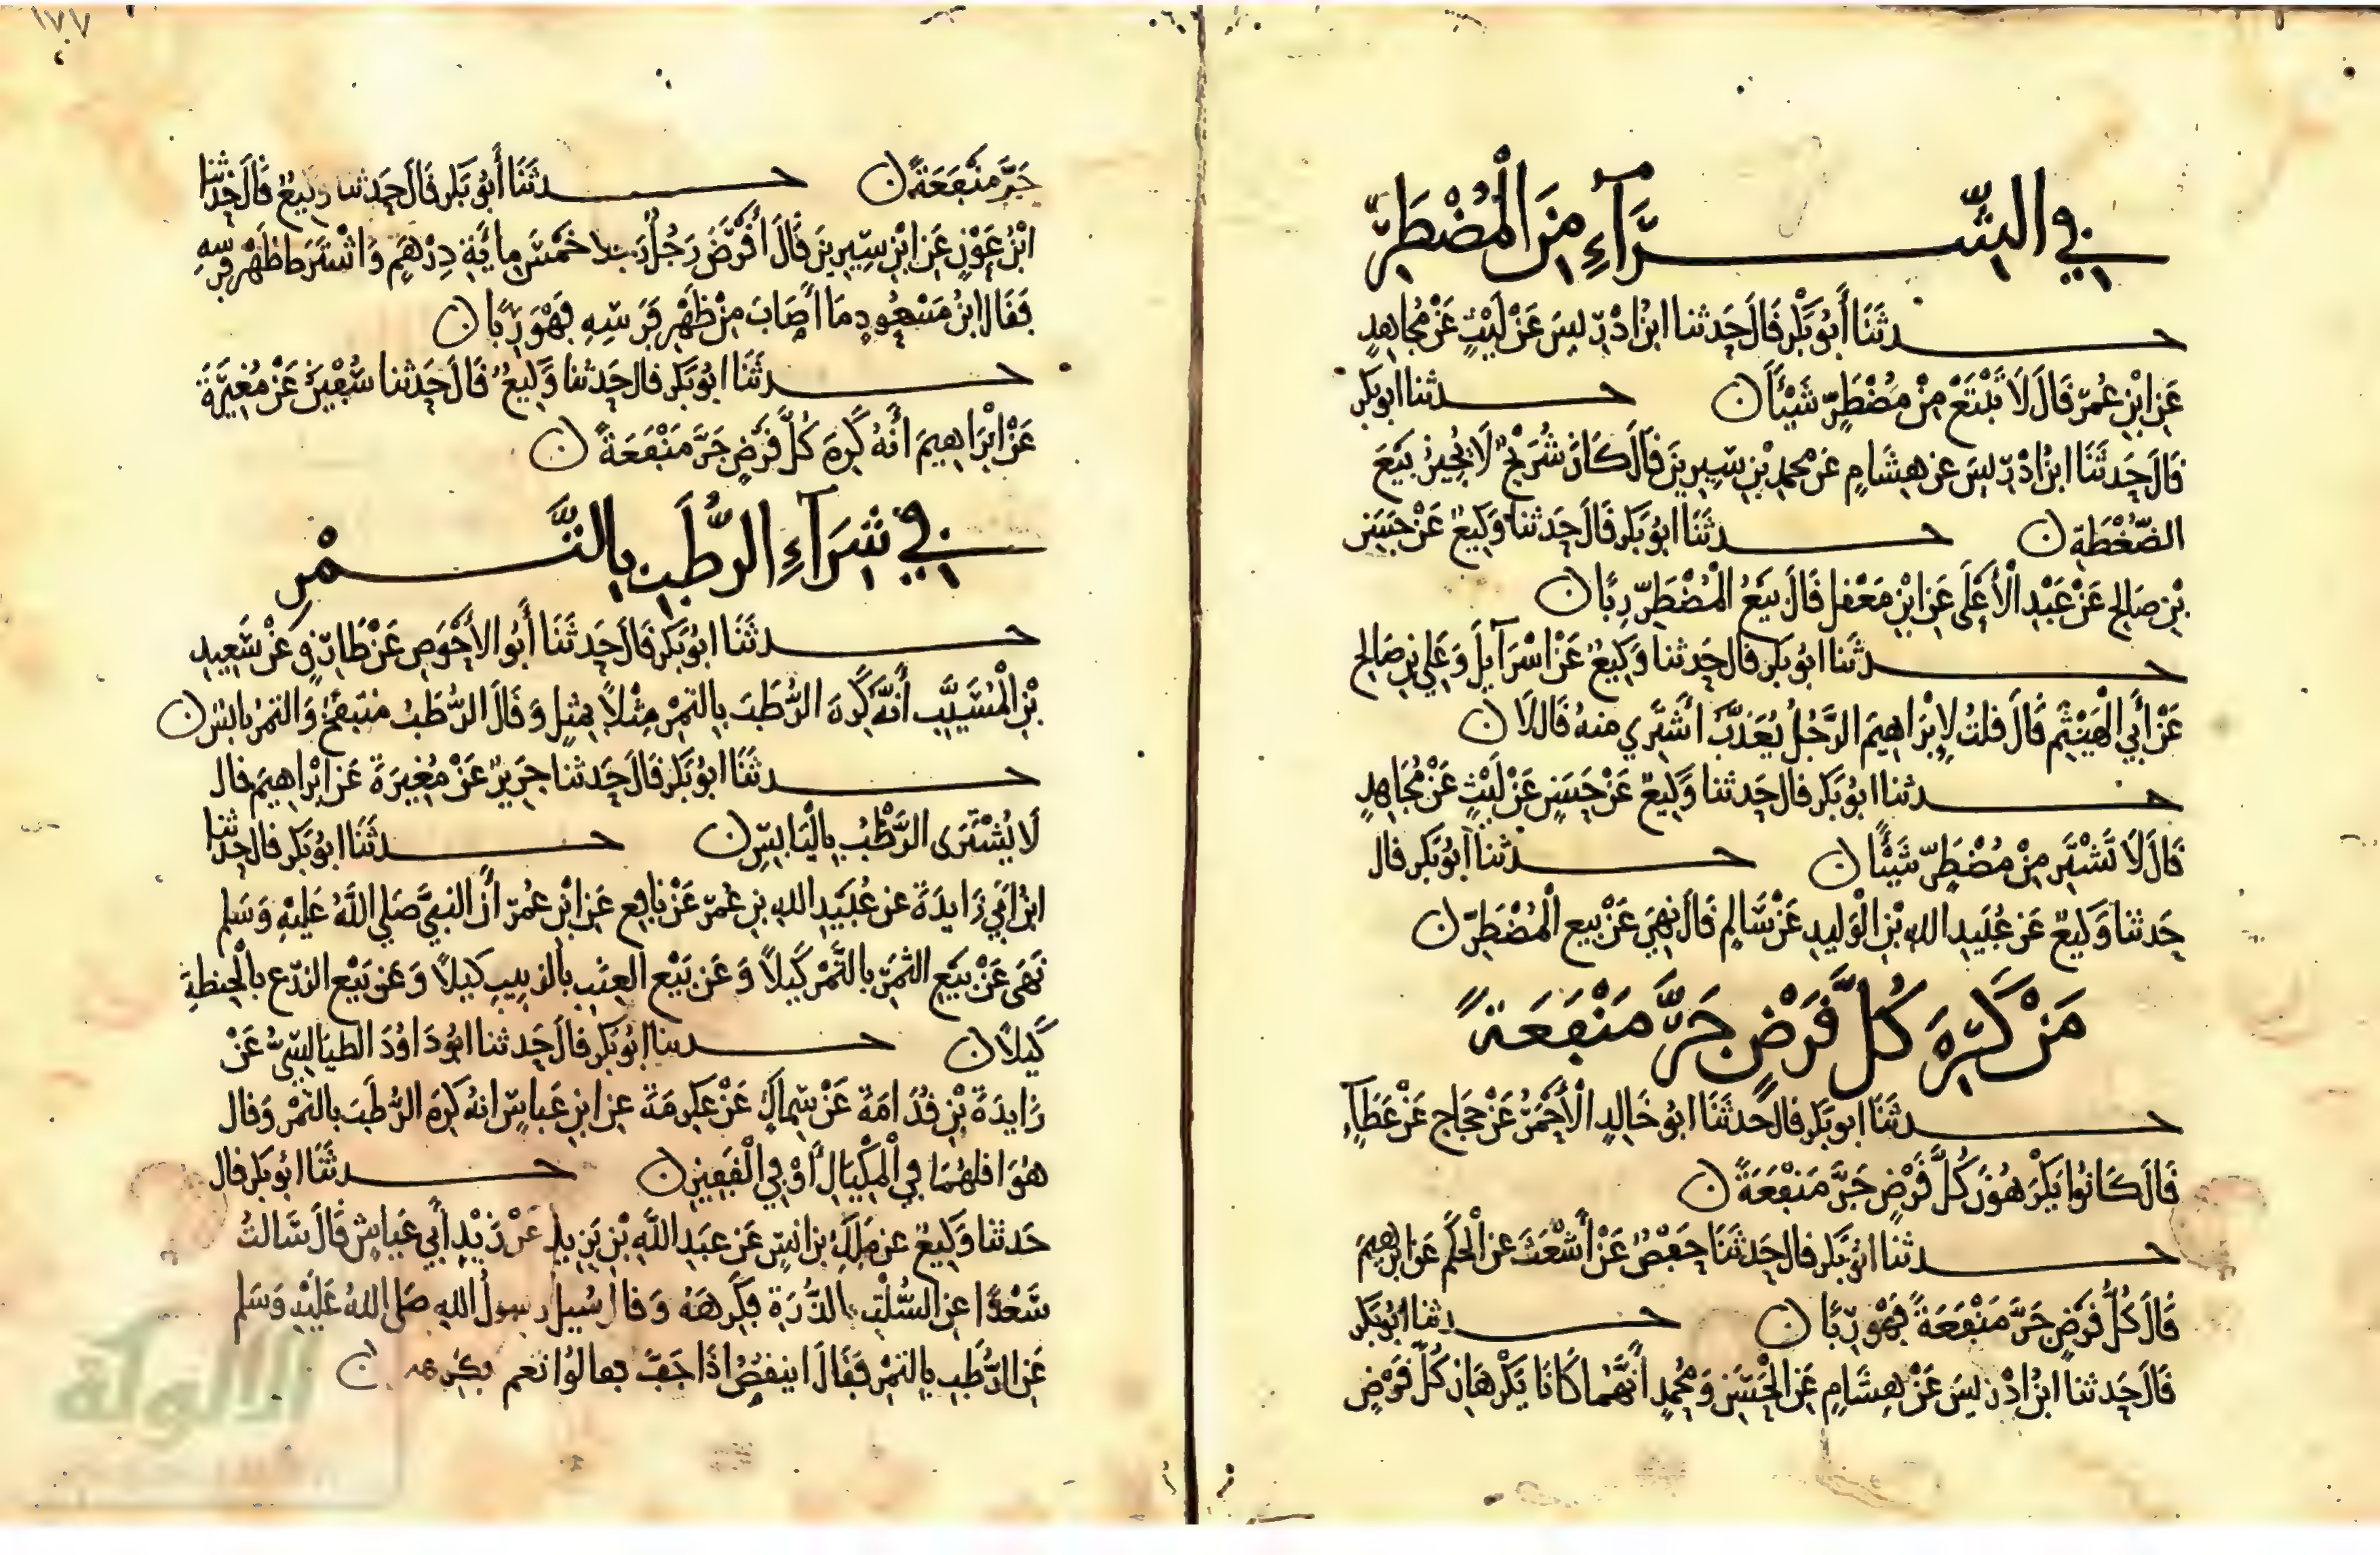 في الشرآء من المضطر
حدثنا أبو بكر قال حدثنا ابن ادريس عن ليث عن مجاهد
عن ابن عمر قال لا تبتع من مضطر شيئا ن حدثنا ابو بكر
قال حدثنا ابن ادريس عن هشام عن محمد بن سيرين قال كان شريح لا يجيز بيع
الضغطة ن حدثنا ابو بكر قال حدثنا وكيع عن حسن
بن صالح عن عبد الأعلى عن ابن معقل قال بيع المضطر ربا ن
حدثنا ابو بكر قال حدثنا وكيع عن اسرآيل وعلي بن صالح
عن أبي الهيثم قال قلت لإبراهيم الرجل يعذب اشتري منه قال لا ن
حدثنا ابو بكر قال حدثنا وكيع عن حسن عن ليث عن مجاهد
قال لا تشتر من مضطر شيئا ن حدثنا أبو بكر قال
حدثنا وكيع عن عبيد الله بن الوليد عن سالم قال نهي عن بيع المضطر ن
من كره كل قرض جر منفعة
حدثنا ابو بكر قال حدثنا ابو خالد الأحمر عن حجاج عن عطآء
قال كانوا يكرهون كل قرض جر منفعة ن
حدثنا ابو بكر قال حدثنا حفص عن أشعث عن الحكم عن ابرهيم
قال كل قرض جر منفعة فهو ربا ن حدثنا ابو بكر
قال حدثنا ابن ادريس عن هشام عن الحسن ومحمد أنهما كانا يكرهان كل قرض
جر منفعة ن حدثنا أبو بكر قال حدثنا وكيع قال حدثنا
ابن عون عن ابن سيرين قال أقرض رجل رجلا خمس ماية درهم واشترط ظهر فرسه
فقال ابن مسعود ما اصاب من ظهر فرسه فهو ربا ن
حدثنا ابو بكر قال حدثنا وكيع قال حدثنا سفين عن مغيرة
عن ابراهيم انه كره كل قرض جر منفعة ن
في شرآء الرطب بالتمر
حدثنا ابو بكر قال حدثنا أبو الأحوص عن طارق عن سعيد
بن المسيب أنه كره الرطب بالتمر مثلا بمثل وقال الرطب منتفخ والتمر يابس ن
حدثنا ابو بكر قال حدثنا جرير عن مغيرة عن ابراهيم قال
لا يشترى الرطب باليابس ن حدثنا ابو بكر قال حدثنا
ابن ابي زايدة عن عبيد الله بن عمر عن نافع عن ابن عمر أن النبي صلي الله عليه وسلم
نهى عن بيع الثمر بالتمر كيلا وعن بيع العنب بالزبيب كيلا وعن بيع الزرع بالحنطة
كيلا ن حدثنا ابو بكر قال حدثنا ابو داود الطيالسي عن
زايدة بن قدامة عن سماك عن عكرمة عن ابن عباس انه كره الرطب بالتمر وقال
هو اقلهما في المكيال أو في القفيز ن حدثنا ابو بكر قال
حدثنا وكيع عن ملك بن انس عن عبد الله بن يزيد عن زيد أبي عياش قال سالت
سعدا عن السلت بالذرة فكرهه وقال سيل رسول الله صلى الله عليه وسلم
عن الرطب بالتمر فقال اينقص اذا جف فقالوا نعم فكرهه ن